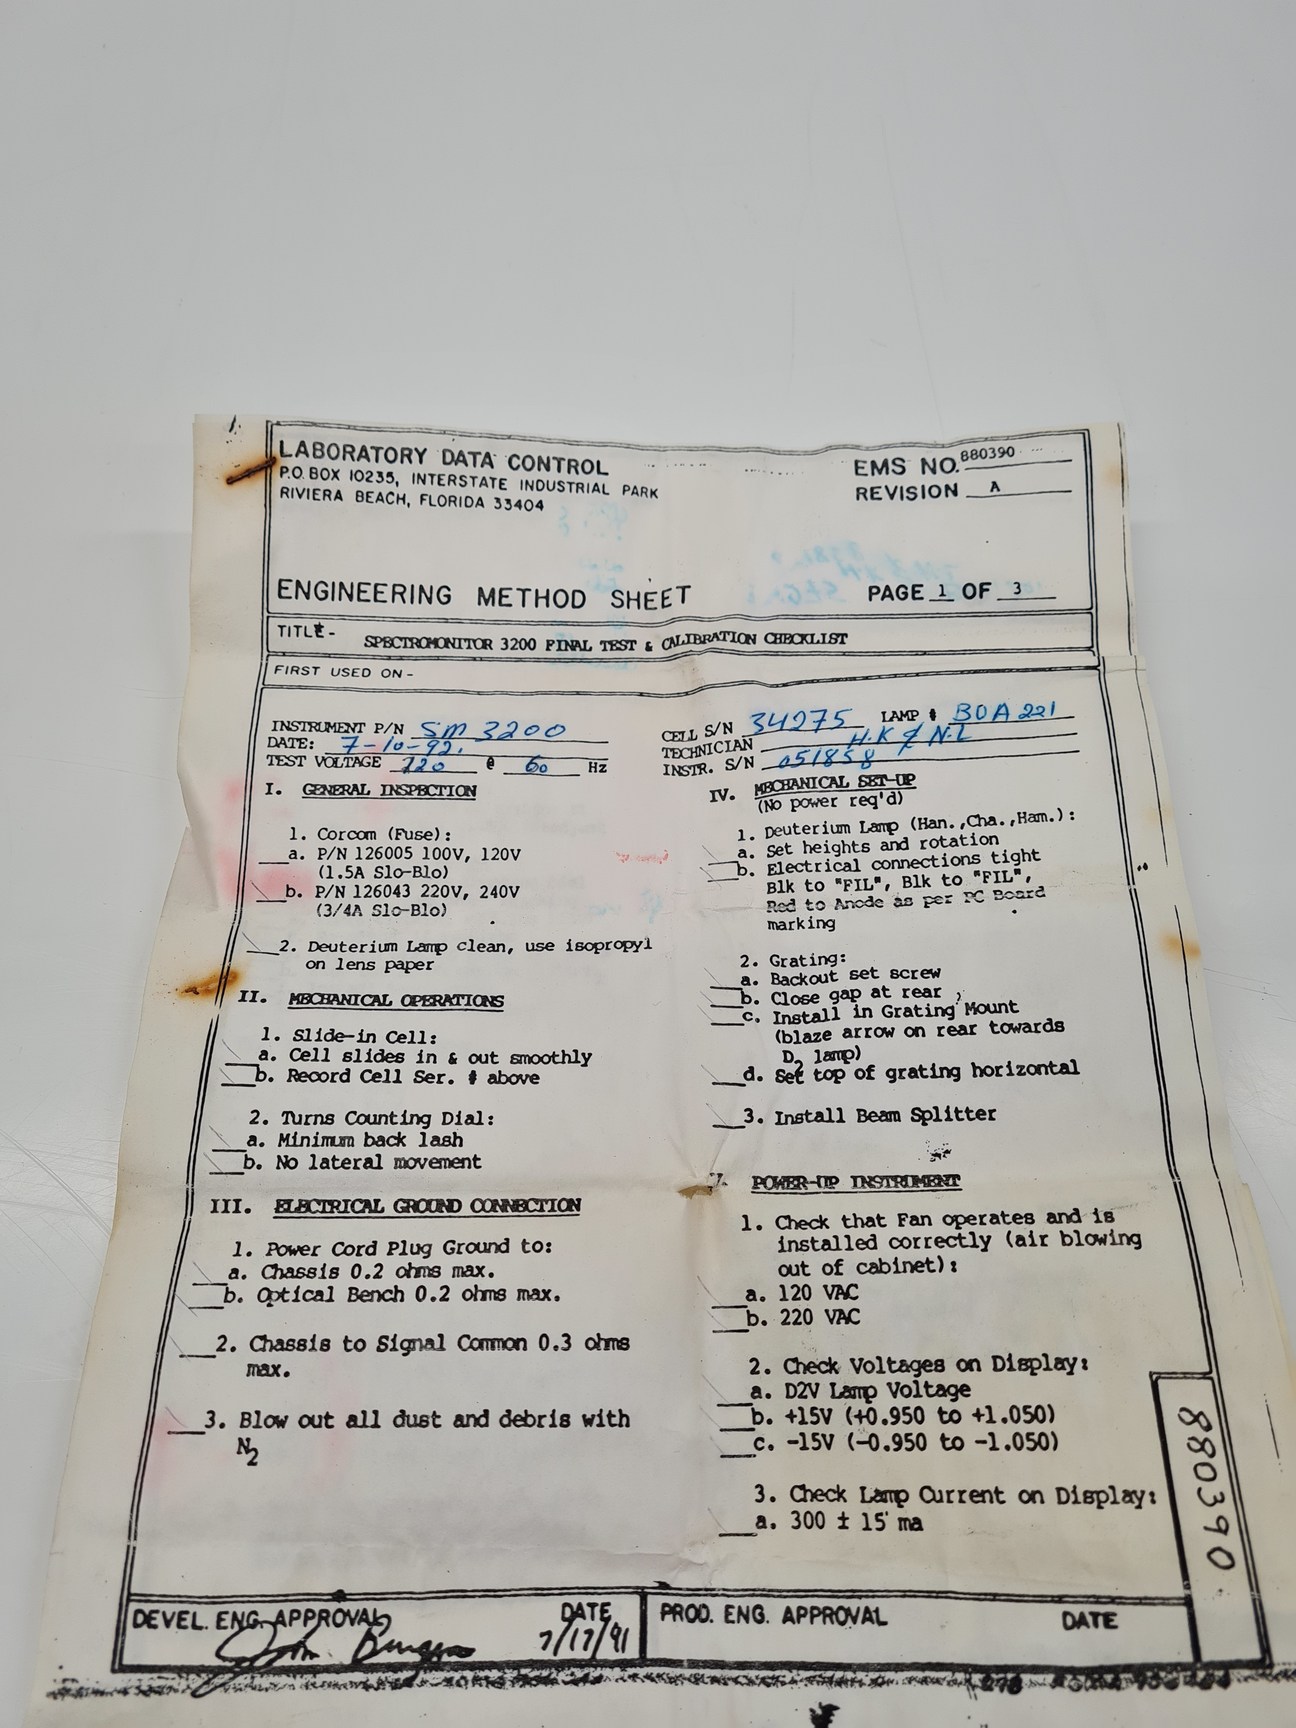 LABORATORY DATA CONTROL
P.O. BOX 10235, INTERSTATE INDUSTRIAL PARK
RIVIERA BEACH, FLORIDA 33404
EMS NO. 880390
REVISION A
ENGINEERING METHOD SHEET
PAGE 1 OF 3
TITLE- SPECTROMONITOR 3200 FINAL TEST & CALIBRATION CHECKLIST
FIRST USED ON-
INSTRUMENT P/N SM 3200
DATE: 7-10-92.
TEST VOLTAGE 220 @ 60 Hz
CELL S/N 34275 LAMP # BOA 221
TECHNICIAN H.K & N.L
INSTR. S/N 051858
I. GENERAL INSPECTION
1. Corcom (Fuse):
a. P/N 126005 100V, 120V
(1.5A Slo-Blo)
b. P/N 126043 220V, 240V
(3/4A Slo-Blo)
2. Deuterium Lamp clean, use isopropyl
on lens paper
II. MECHANICAL OPERATIONS
1. Slide-in Cell:
a. Cell slides in & out smoothly
b. Record Cell Ser. # above
2. Turns Counting Dial:
a. Minimum back lash
b. No lateral movement
III. ELECTRICAL GROUND CONNECTION
1. Power Cord Plug Ground to:
a. Chassis 0.2 ohms max.
b. Optical Bench 0.2 ohms max.
2. Chassis to Signal Common 0.3 ohms
max.
3. Blow out all dust and debris with
N2
IV. MECHANICAL SET-UP
(No power req'd)
1. Deuterium Lamp (Han.,Cha.,Ham.):
a. Set heights and rotation
b. Electrical connections tight
Blk to "FIL", Blk to "FIL",
Red to Anode as per PC Board
marking
2. Grating:
a. Backout set screw
b. Close gap at rear
c. Install in Grating Mount
(blaze arrow on rear towards
D2 lamp)
d. Set top of grating horizontal
3. Install Beam Splitter
V. POWER-UP INSTRUMENT
1. Check that Fan operates and is
installed correctly (air blowing
out of cabinet):
a. 120 VAC
b. 220 VAC
2. Check Voltages on Display:
a. D2V Lamp Voltage
b. +15V (+0.950 to +1.050)
c. -15V (-0.950 to -1.050)
3. Check Lamp Current on Display:
a. 300 ± 15 ma
880390
DEVEL. ENG. APPROVAL DATE
7/17/91
PROD. ENG. APPROVAL DATE